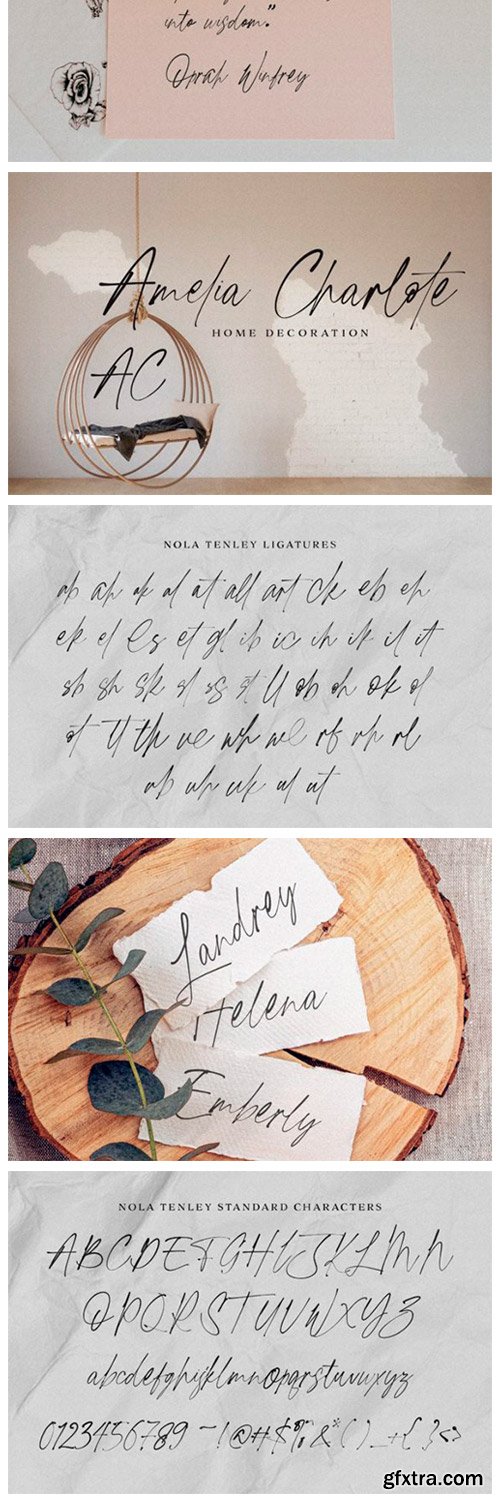 into wisdom."
Oprah Winfrey
Amelia Charlote
HOME DECORATION
AC
NOLA TENLEY LIGATURES
ab ah ak al at all art ck eb eh
ek el es et gl ib ic ih ik il it
sb sh sk sl ss st ll ob oh ok ol
ot tt th ve wh we rf rh rl
ub uh uk ul ut
Landrey
Helena
Emberly
NOLA TENLEY STANDARD CHARACTERS
ABCDEFGHIJKLMN
OPQRSTUVWXYZ
abcdefghijklmnopqrstuvwxyz
0123456789 -!@#$%&*()_+{}<>
gfxtra.com